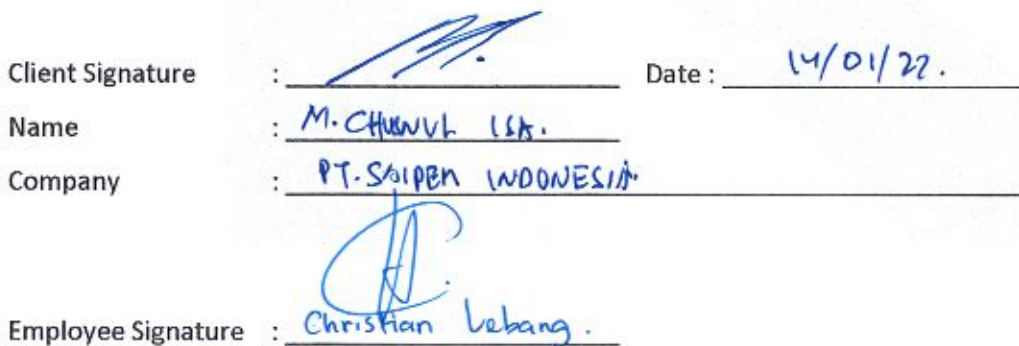 Client Signature : Date : 14/01/22.
Name : M. CHUSNUL ISA.
Company : PT. SAIPEM INDONESIA.
Employee Signature : Christian Lebang.